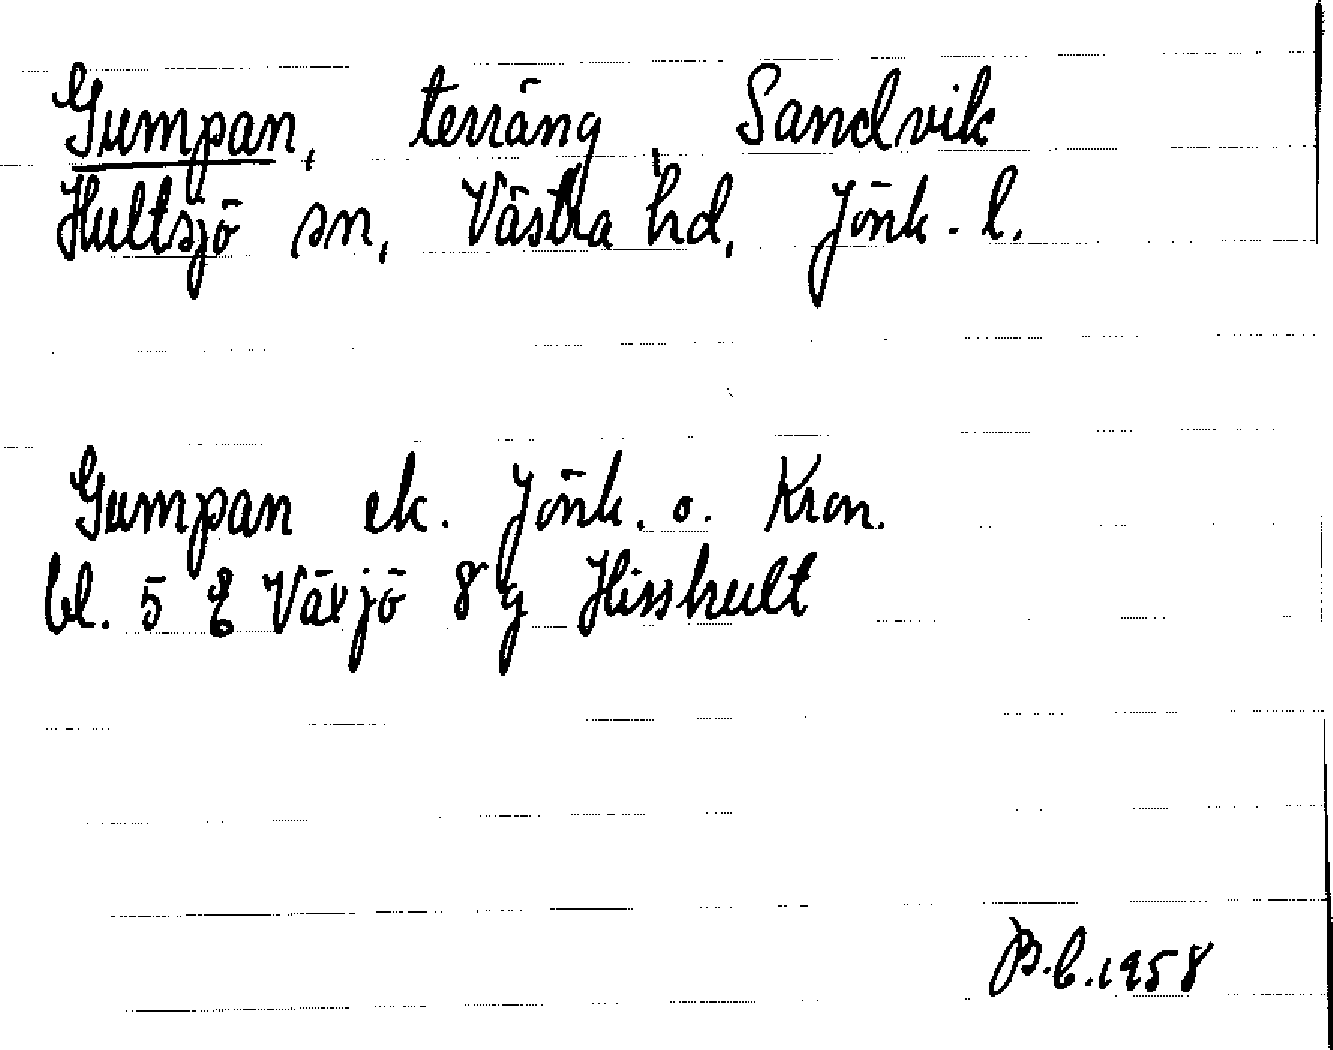 Gumpan, terräng, Sandvik
Hultsjö sn, Västra hd, Jönk. l.
Gumpan ek. Jönk. o. Kron.
bl. 5 E Växjö 8 g Hisshult
B.b.1958